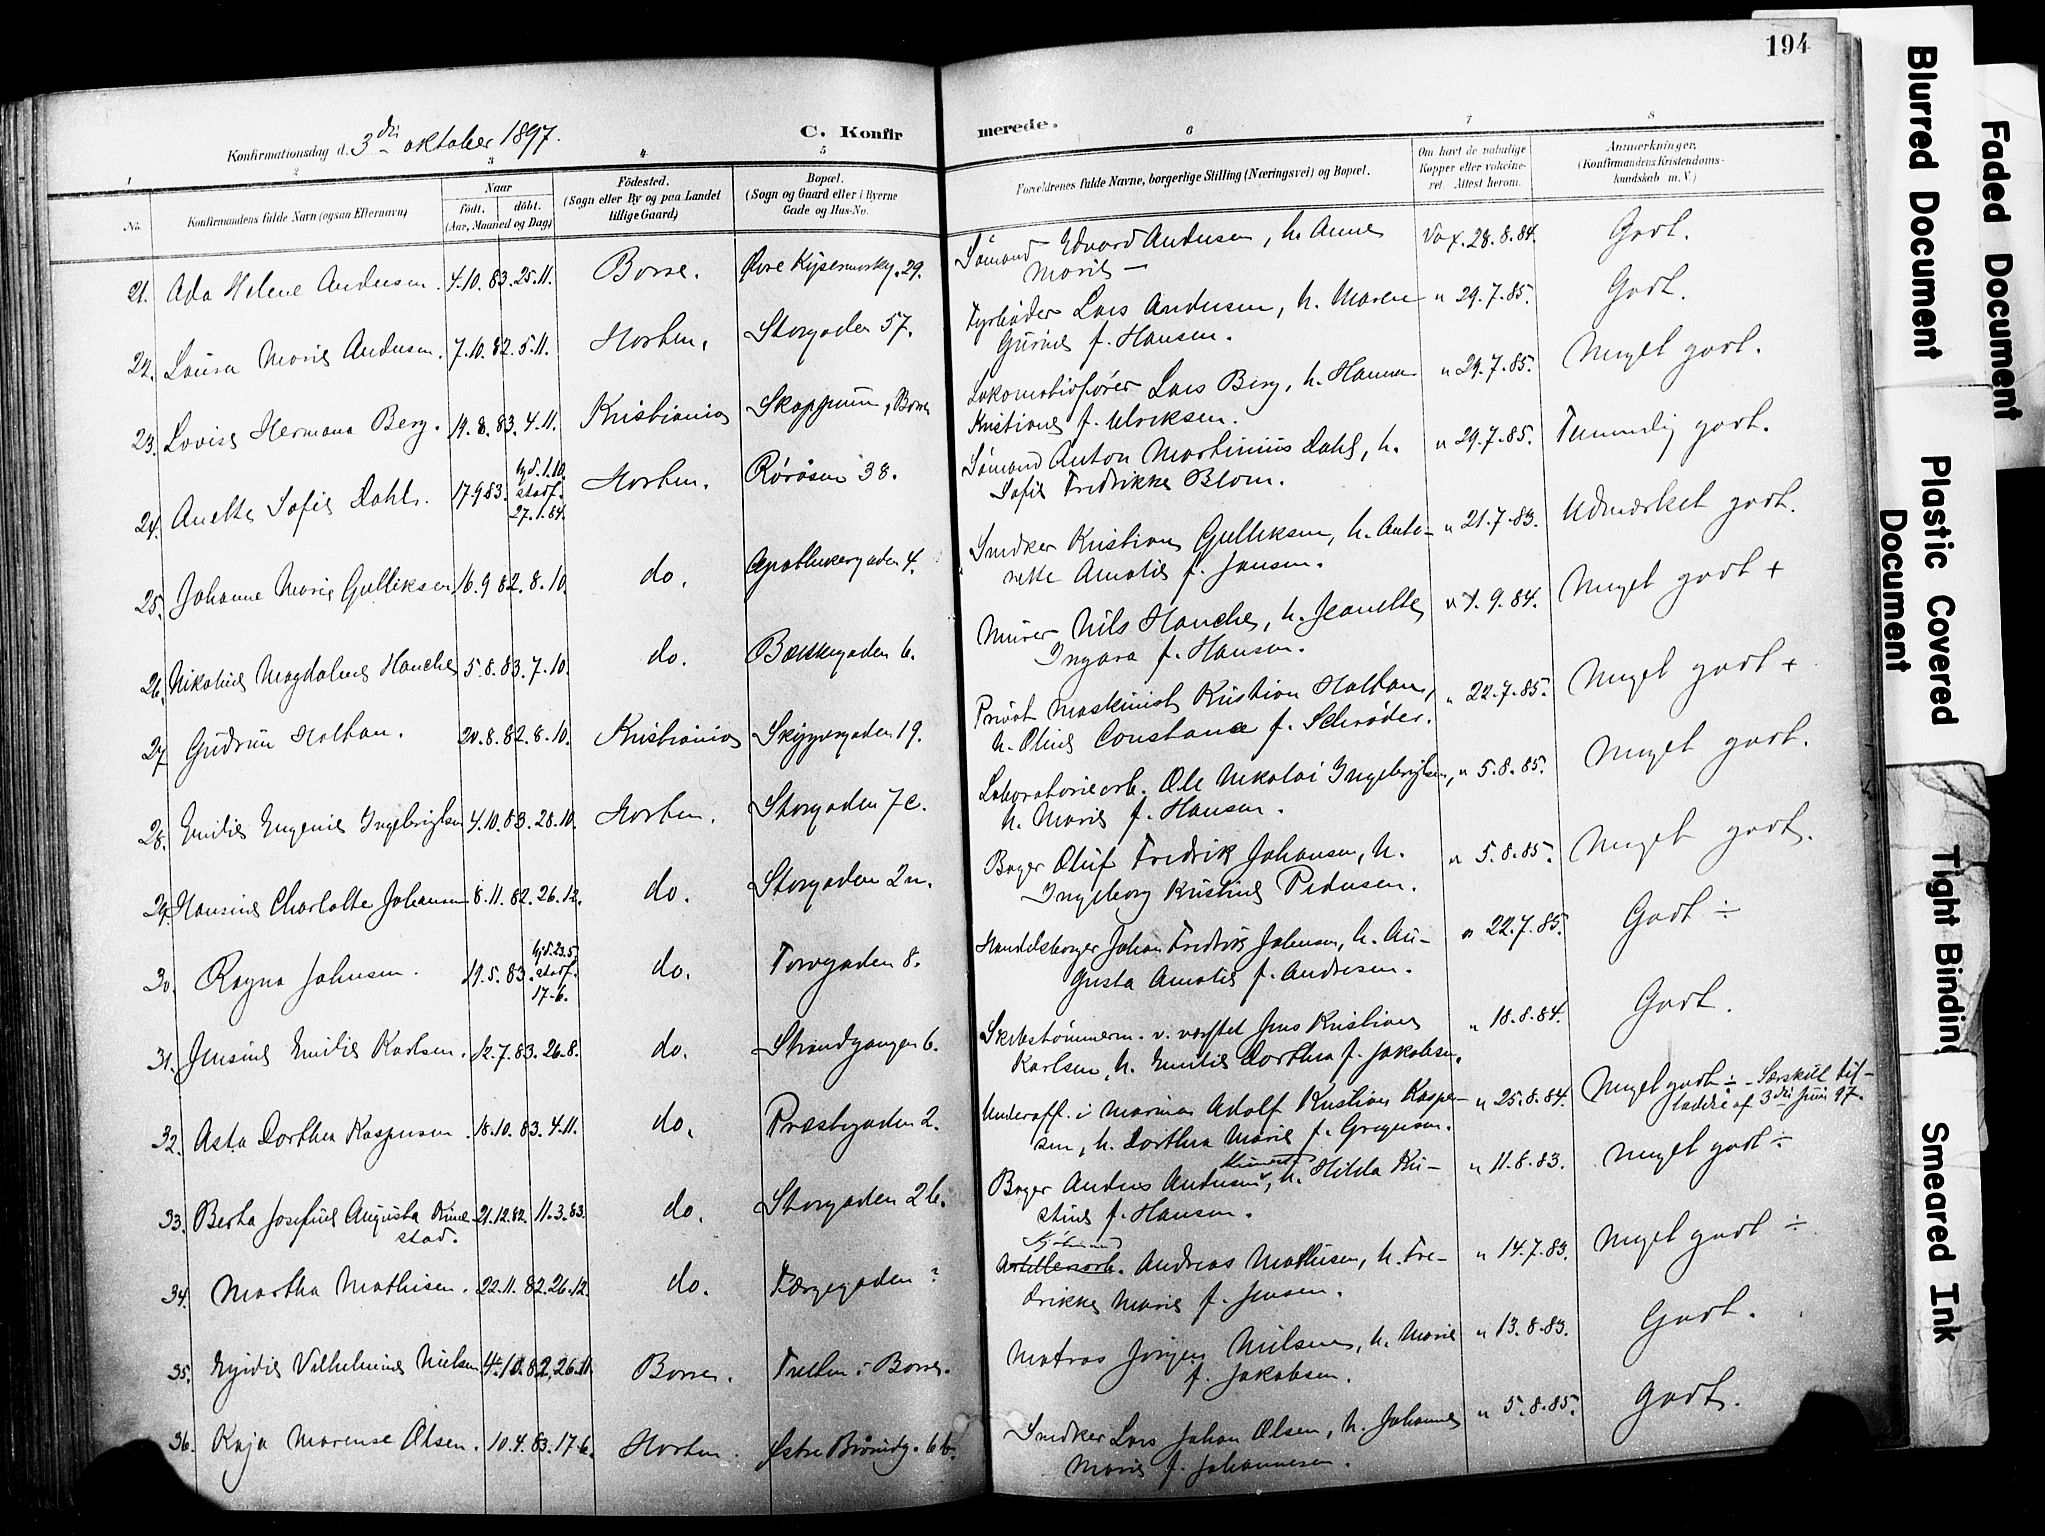 194
Konfirmationsdag d. 3die oktober 1897.
C. Konfirmerede.
1 2 3 4 5 6 7 8
No.
Konfirmandens fulde Navn (ogsaa Efternavn)
Naar
födt. döbt.
(Aar, Maaned og Dag)
Födested.
(Sogn eller By og paa Landet
tillige Gaard)
Bopæl.
(Sogn og Gaard eller i Byerne
Gade og Hus-No.
Forældrenes fulde Navne, borgerlige Stilling (Næringsvei) og Bopæl.
Om havt de naturlige
Kopper eller vakcine-
ret. Attest herom.
Anmerkninger.
(Konfirmandens Kristendoms-
kundskab m. V.)
21. Ada Helene Andersen. 4.10.83. 25.11. Borre. Øvre Kejsemarksg. 29. Sømand Edvard Andersen, h. Anne
Marie — Vax. 28.8.84. Godt.
22. Laura Marie Andersen. 7.10.82. 5.11. Horten. Storgaden 57. Fyrbøder Lars Andersen, h. Maren
Gurine f. Hansen. " 29.7.85. Godt.
23. Lovise Hermana Berg. 19.8.83. 4.11. Kristiania Skoppum, Borre Lokomotivfører Lars Berg, h. Hanna
Kristiane f. Ulriksen. " 29.7.85. Meget godt.
24. Anette Sofie Dahl. 17.9.83. hjd. 1.10.
stadf.
27.1.84. Horten. Røråsen 38. Sømand Anton Martinius Dahl, h.
Sofie Fredrikke Blom. " 29.7.85. Temmelig godt.
25. Johanne Marie Gulliksen 16.9.82. 8.10. do. Apothekergaden 4. Snedker Kristian Gulliksen, h. Anto-
nette Amalie f. Jansen. " 21.7.83. Udmærket godt.
26. Nikoline Magdalene Hanche 5.8.83. 7.10. do. Bakkegaden 6. Murer Nils Hanche, h. Jeanette
Ingara f. Hansen. " 1.9.84. Meget godt +
27. Gudrun Holtan. 20.8.82. 8.10. Kristiania Skippergaden 19. Privat maskinist Kristian Holtan,
h. Oline Constance f. Schrøder. " 22.7.85. Meget godt +
28. Emilie Eugenie Ingebrigtsen 4.10.83. 28.10. Horten. Storgaden 7c. Laboratoriearb. Ole Nikolai Ingebrigtsen,
h. Marie f. Hansen. " 5.8.85. Meget godt.
29. Hansine Charlotte Johansen 8.11.82. 26.12. do. Storgaden 2n. Bager Oluf Fredrik Johansen, h.
Ingeborg Kristine Pedersen. " 5.8.85. Meget godt.
30. Ragna Johnsen. 19.5.83. hjd. 23.5
stadf.
17.6. do. Torvgaden 8. Handelsborger Johan Fredrik Johnsen, h. Au-
gusta Amalie f. Andresen. " 22.7.85. Godt ÷
31. Jensine Emilie Karlsen. 12.7.83. 26.8. do. Strandgangen 6. Skibstømmerm. v. værftet Jens Kristian
Karlsen, h. Emilie Dorthea f. Jakobsen. " 18.8.84. Godt.
32. Asta Dorthea Kaspersen. 18.10.83. 4.11. do. Præstegaden 2. Underoff. i marinen Adolf Kristian Kasper-
sen, h. Dorthea Marie f. Gregersen. " 25.8.84. Meget godt ÷ – Særskilt til-
ladelse af 3die Juni 97.
33. Berta Josefine Augusta Kime-
stad. 21.12.82. 11.3.83. do. Storgaden 26. Bager Anders Andersen Kimestad, h. Hilda Kri-
stine f. Hansen. " 11.8.83. Meget godt ÷
34. Martha Mathisen. 22.11.82. 26.12. do. Færgegaden ? Artilleriarb. Andreas Mathisen, h. Fre-
drikke Marie f. Jensen. " 14.7.83. Meget godt ÷
35. Egidie Vilhelmine Nielsen 4.10.82. 26.11. Borre. Trellen i Borre. Matros Jørgen Nielsen, h. Marie
f. Jakobsen. " 13.8.83. Godt.
36. Kaja Marense Olsen. 10.4.83. 17.6. Horten. Østre Brårudg. 6b. Snedker Lars Johan Olsen, h. Johanne
Marie f. Johannesen. " 5.8.85. Godt.
Faded Document
Blurred Document
Plastic Covered
Document
Tight Binding
Smeared Ink